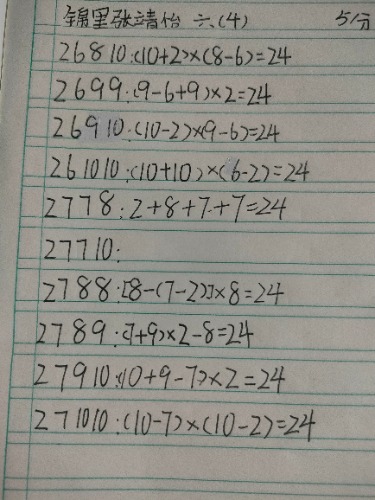 锦里张靖怡 六(4) 5分
26810:(10+2)×(8-6)=24
2699:(9-6+9)×2=24
26910:(10-2)×(9-6)=24
261010:(10+10)×(6-2)=24
2778:2+8+7+7=24
27710:
2788:[8-(7-2)]×8=24
2789:(7+9)×2-8=24
27910:(10+9-7)×2=24
271010:(10-7)×(10-2)=24